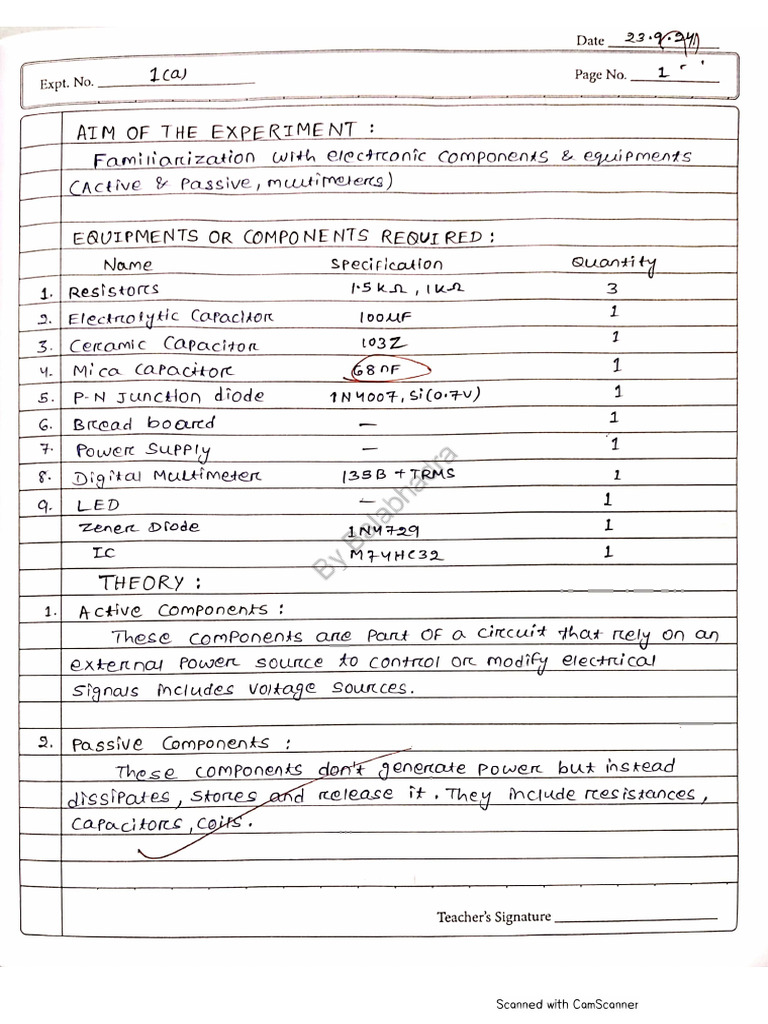 Date 23.9.24
Expt. No. 1(a)
Page No. 1
AIM OF THE EXPERIMENT :
Familiarization with electronic components & equipments
(Active & Passive, multimeters)
EQUIPMENTS OR COMPONENTS REQUIRED :
Name Specification Quantity
1. Resistors 1.5KΩ, 1KΩ 3
2. Electrolytic Capacitor 100μF 1
3. Ceramic Capacitor 103Z 1
4. Mica Capacitor 68nF 1
5. P-N Junction diode 1N4007, Si(0.7V) 1
6. Bread board — 1
7. Power Supply — 1
8. Digital Multimeter 135B + TRMS 1
9. LED — 1
Zener Diode 1N4729 1
IC M74HC32 1
THEORY :
1. Active Components :
These components are part of a circuit that rely on an
external power source to control or modify electrical
signals includes voltage sources.
2. Passive Components :
These components don't generate power but instead
dissipates, stores and release it. They include resistances,
capacitors, coils.
Teacher's Signature
By Balabhadra
Scanned with CamScanner